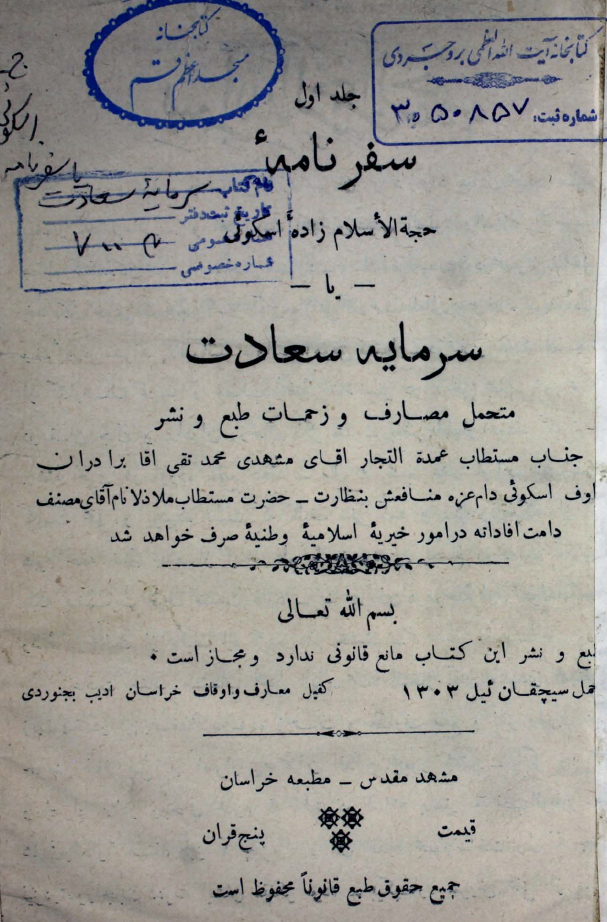 کتابخانه
مسجد اعظم قم
کتابخانه آیت الله العظمی بروجردی
شماره ثبت: ۳۰۵۰۸۵۷
جلد اول
سفر نامهٔ
یا سفرنامه
نام کتاب سرمایهٔ سعادت
تاریخ ثبت دفتر
عمومی
شماره خصوصی
حجة الأسلام زادهٔ اسکوئی
– یا –
سرمایه سعادت
متحمل مصارف و زحمات طبع و نشر
جناب مستطاب عمدة التجار اقای مشهدی محمد تقی اقا برادران
اوف اسکوئی دام عزه منافعش بنظارت – حضرت مستطاب ملاذلانام آقای مصنف
دامت افاداته در امور خیریهٔ اسلامیهٔ وطنیهٔ صرف خواهد شد
بسم الله تعالی
طبع و نشر این کتاب مانع قانونی ندارد و مجاز است ٠
حمل سیچقان ئیل ۱۳۰۳ کفیل معارف و اوقاف خراسان ادیب بجنوردی
مشهد مقدس – مطبعه خراسان
قیمت پنج قران
جمیع حقوق طبع قانوناً محفوظ است